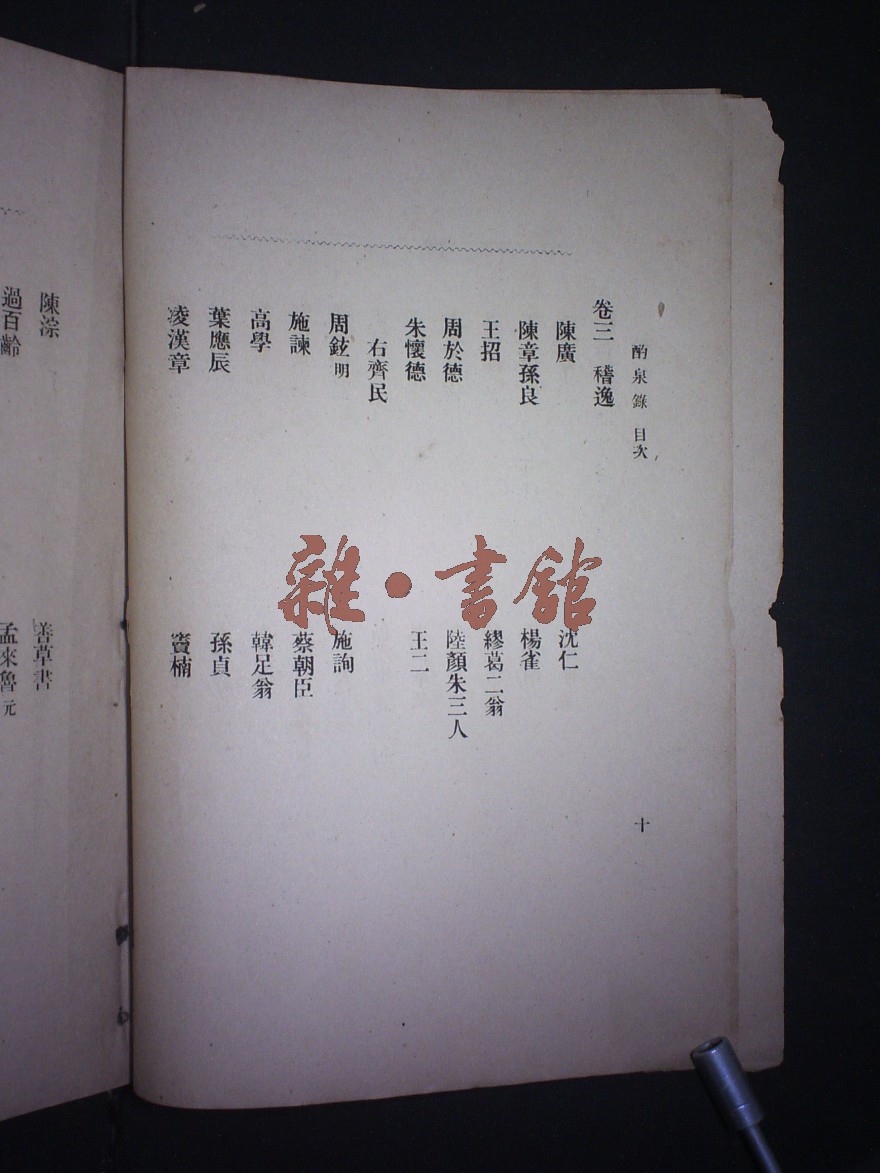 酌泉錄 目次
十
卷三 稽逸
陳廣 沈仁
陳章孫良 楊雀
王招 繆葛二翁
周於德 陸顏朱三人
朱懷德 王二
右齊民
周鉉明 施詢
施諫 蔡朝臣
高學 韓足翁
葉應辰 孫貞
凌漢章 竇楠
陳淙 善草書
過百齡 孟來魯元
雜·書館